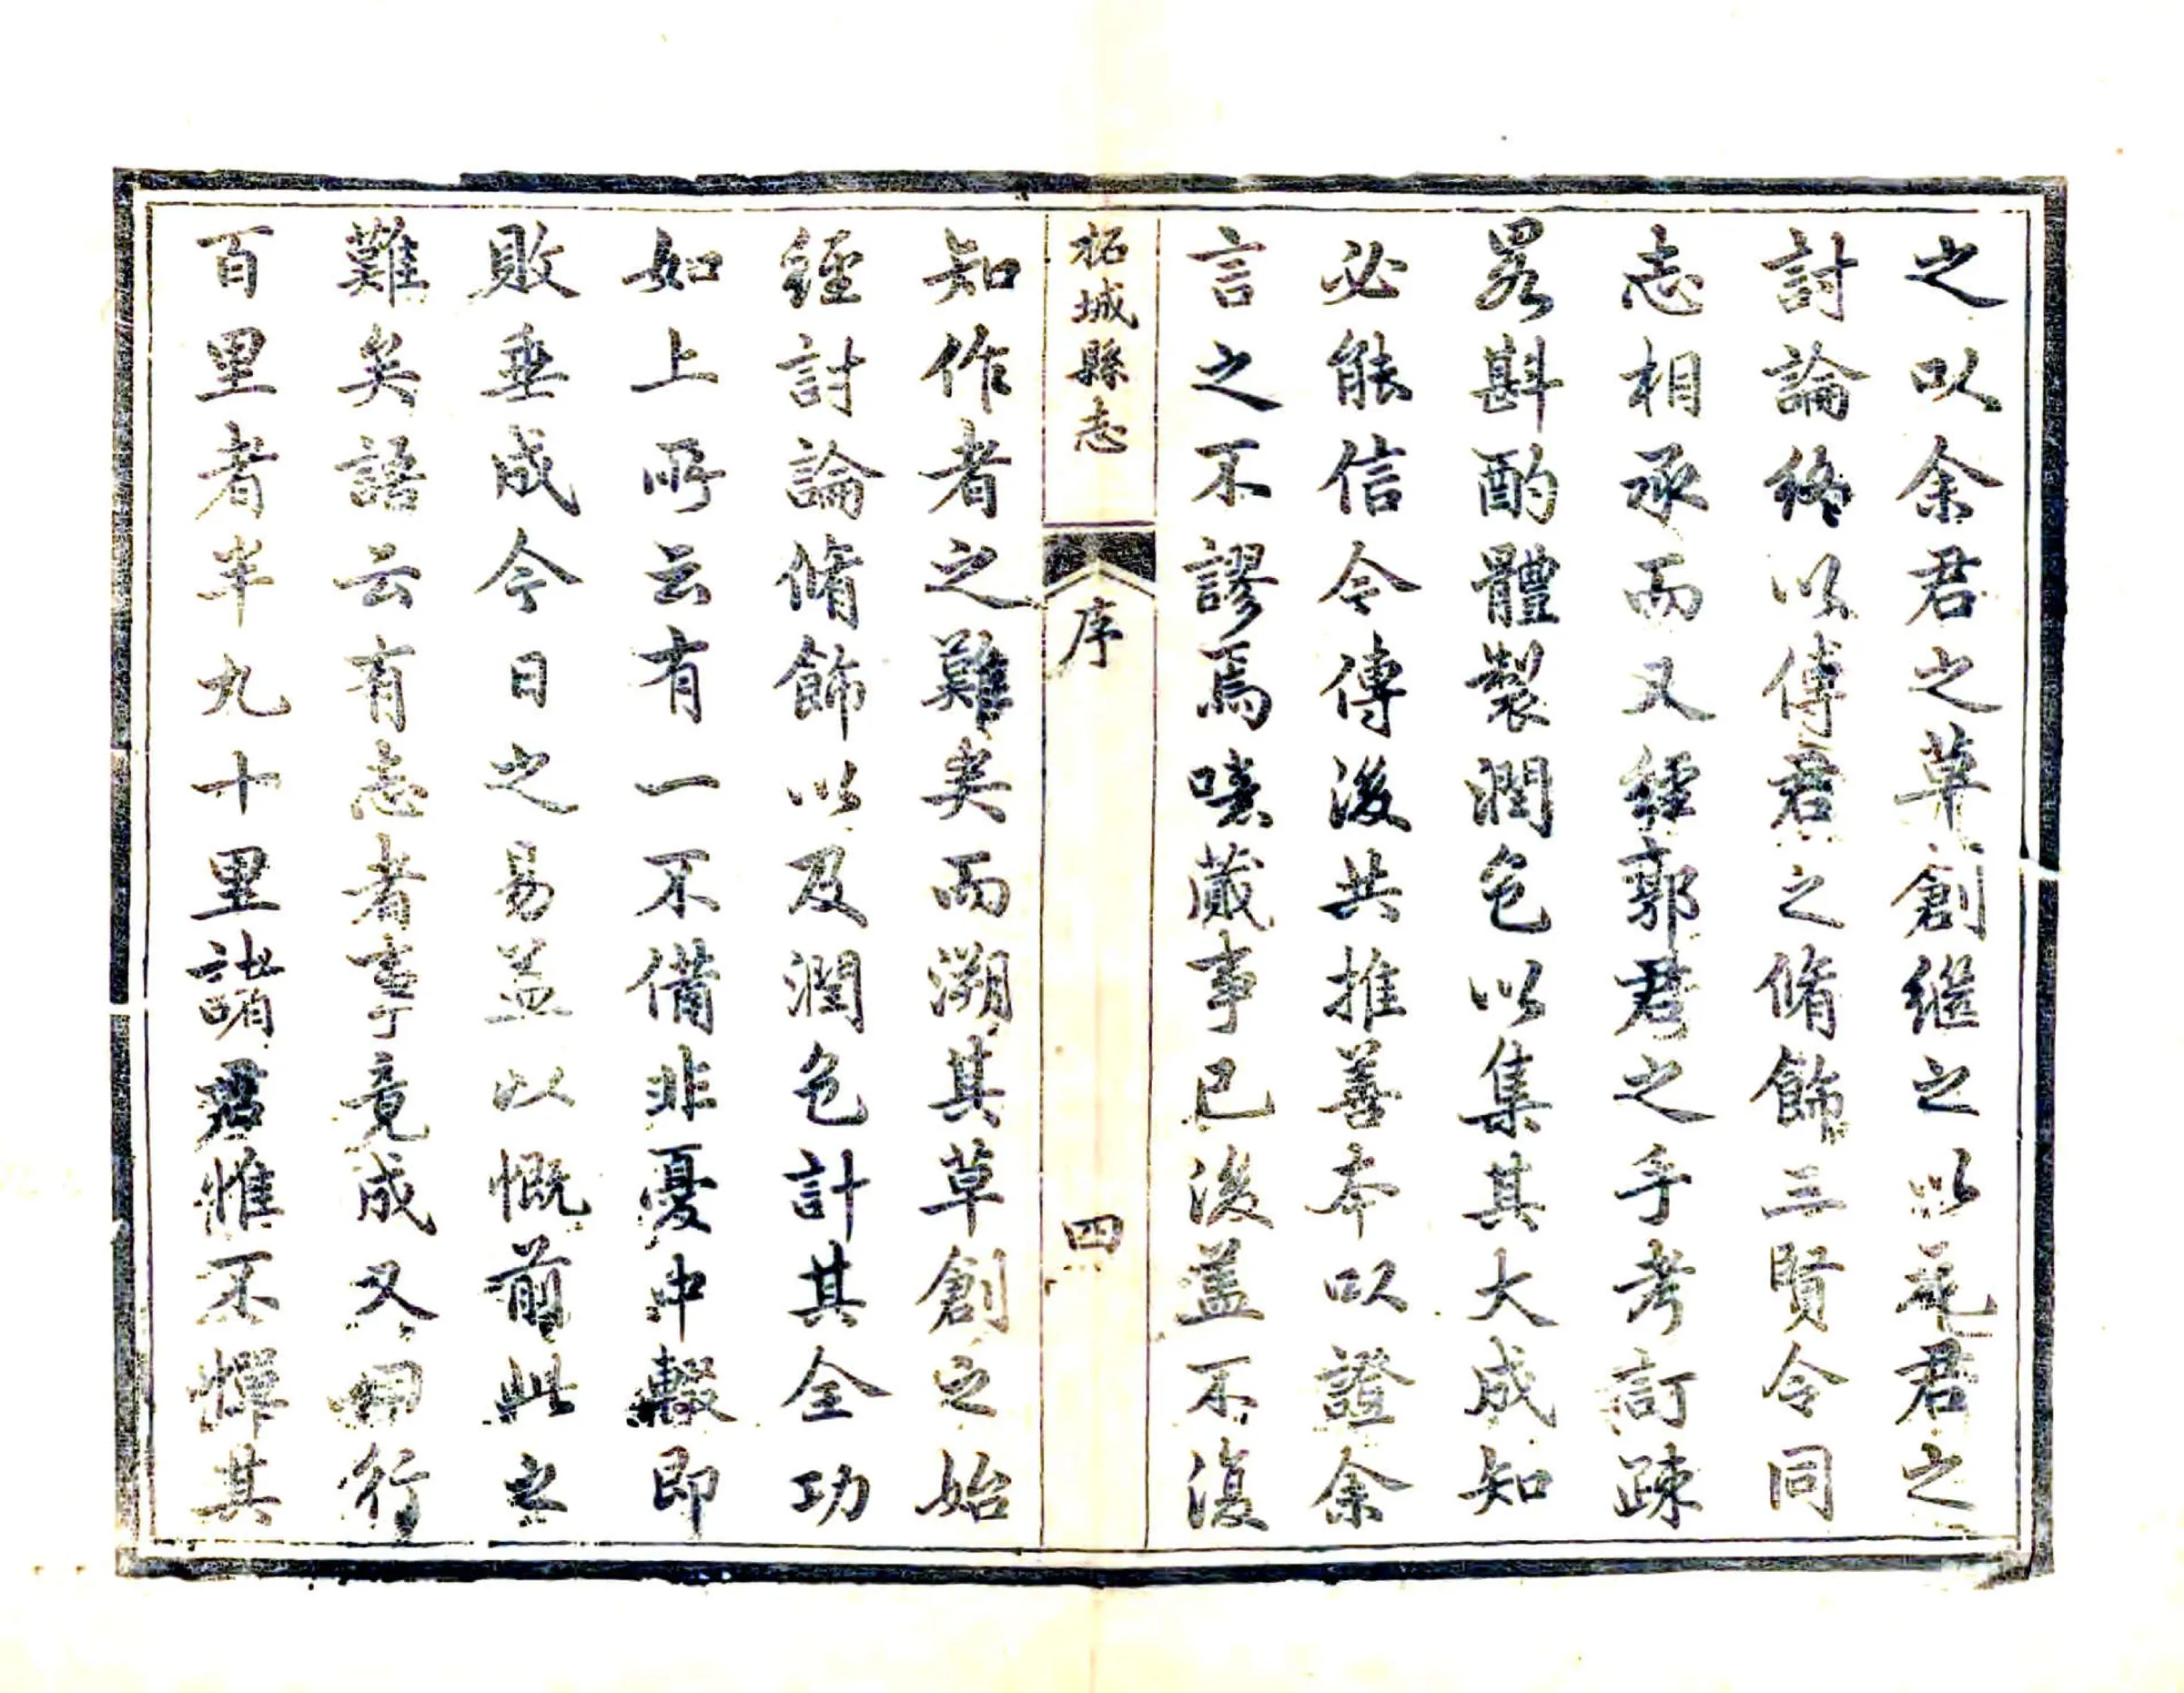 之以余君之草創繼之以元君之
討論終以傅君之脩飾三賢令同
志相承而又經郭君之手考訂疎
畧斟酌體製潤色以集其大成知
必能信今傳後共推善本以證余
言之不謬焉噫蕆事已後蓋不復
柘城縣志
序
四
知作者之難矣而溯其草創之始
經討論脩飾以及潤色計其全功
如上所云有一不備非憂中輟即
敗垂成今日之易益以慨前此之
難矣語云有志者事竟成又曰行
百里者半九十里諸君惟不憚其